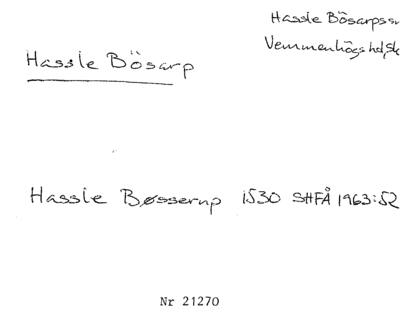 Hassle Bösarps sn
Vemmenhögs hd, Sk
Hassle Bösarp
Hassle Bøsserup 1530 SHFÅ 1963:52
Nr 21270